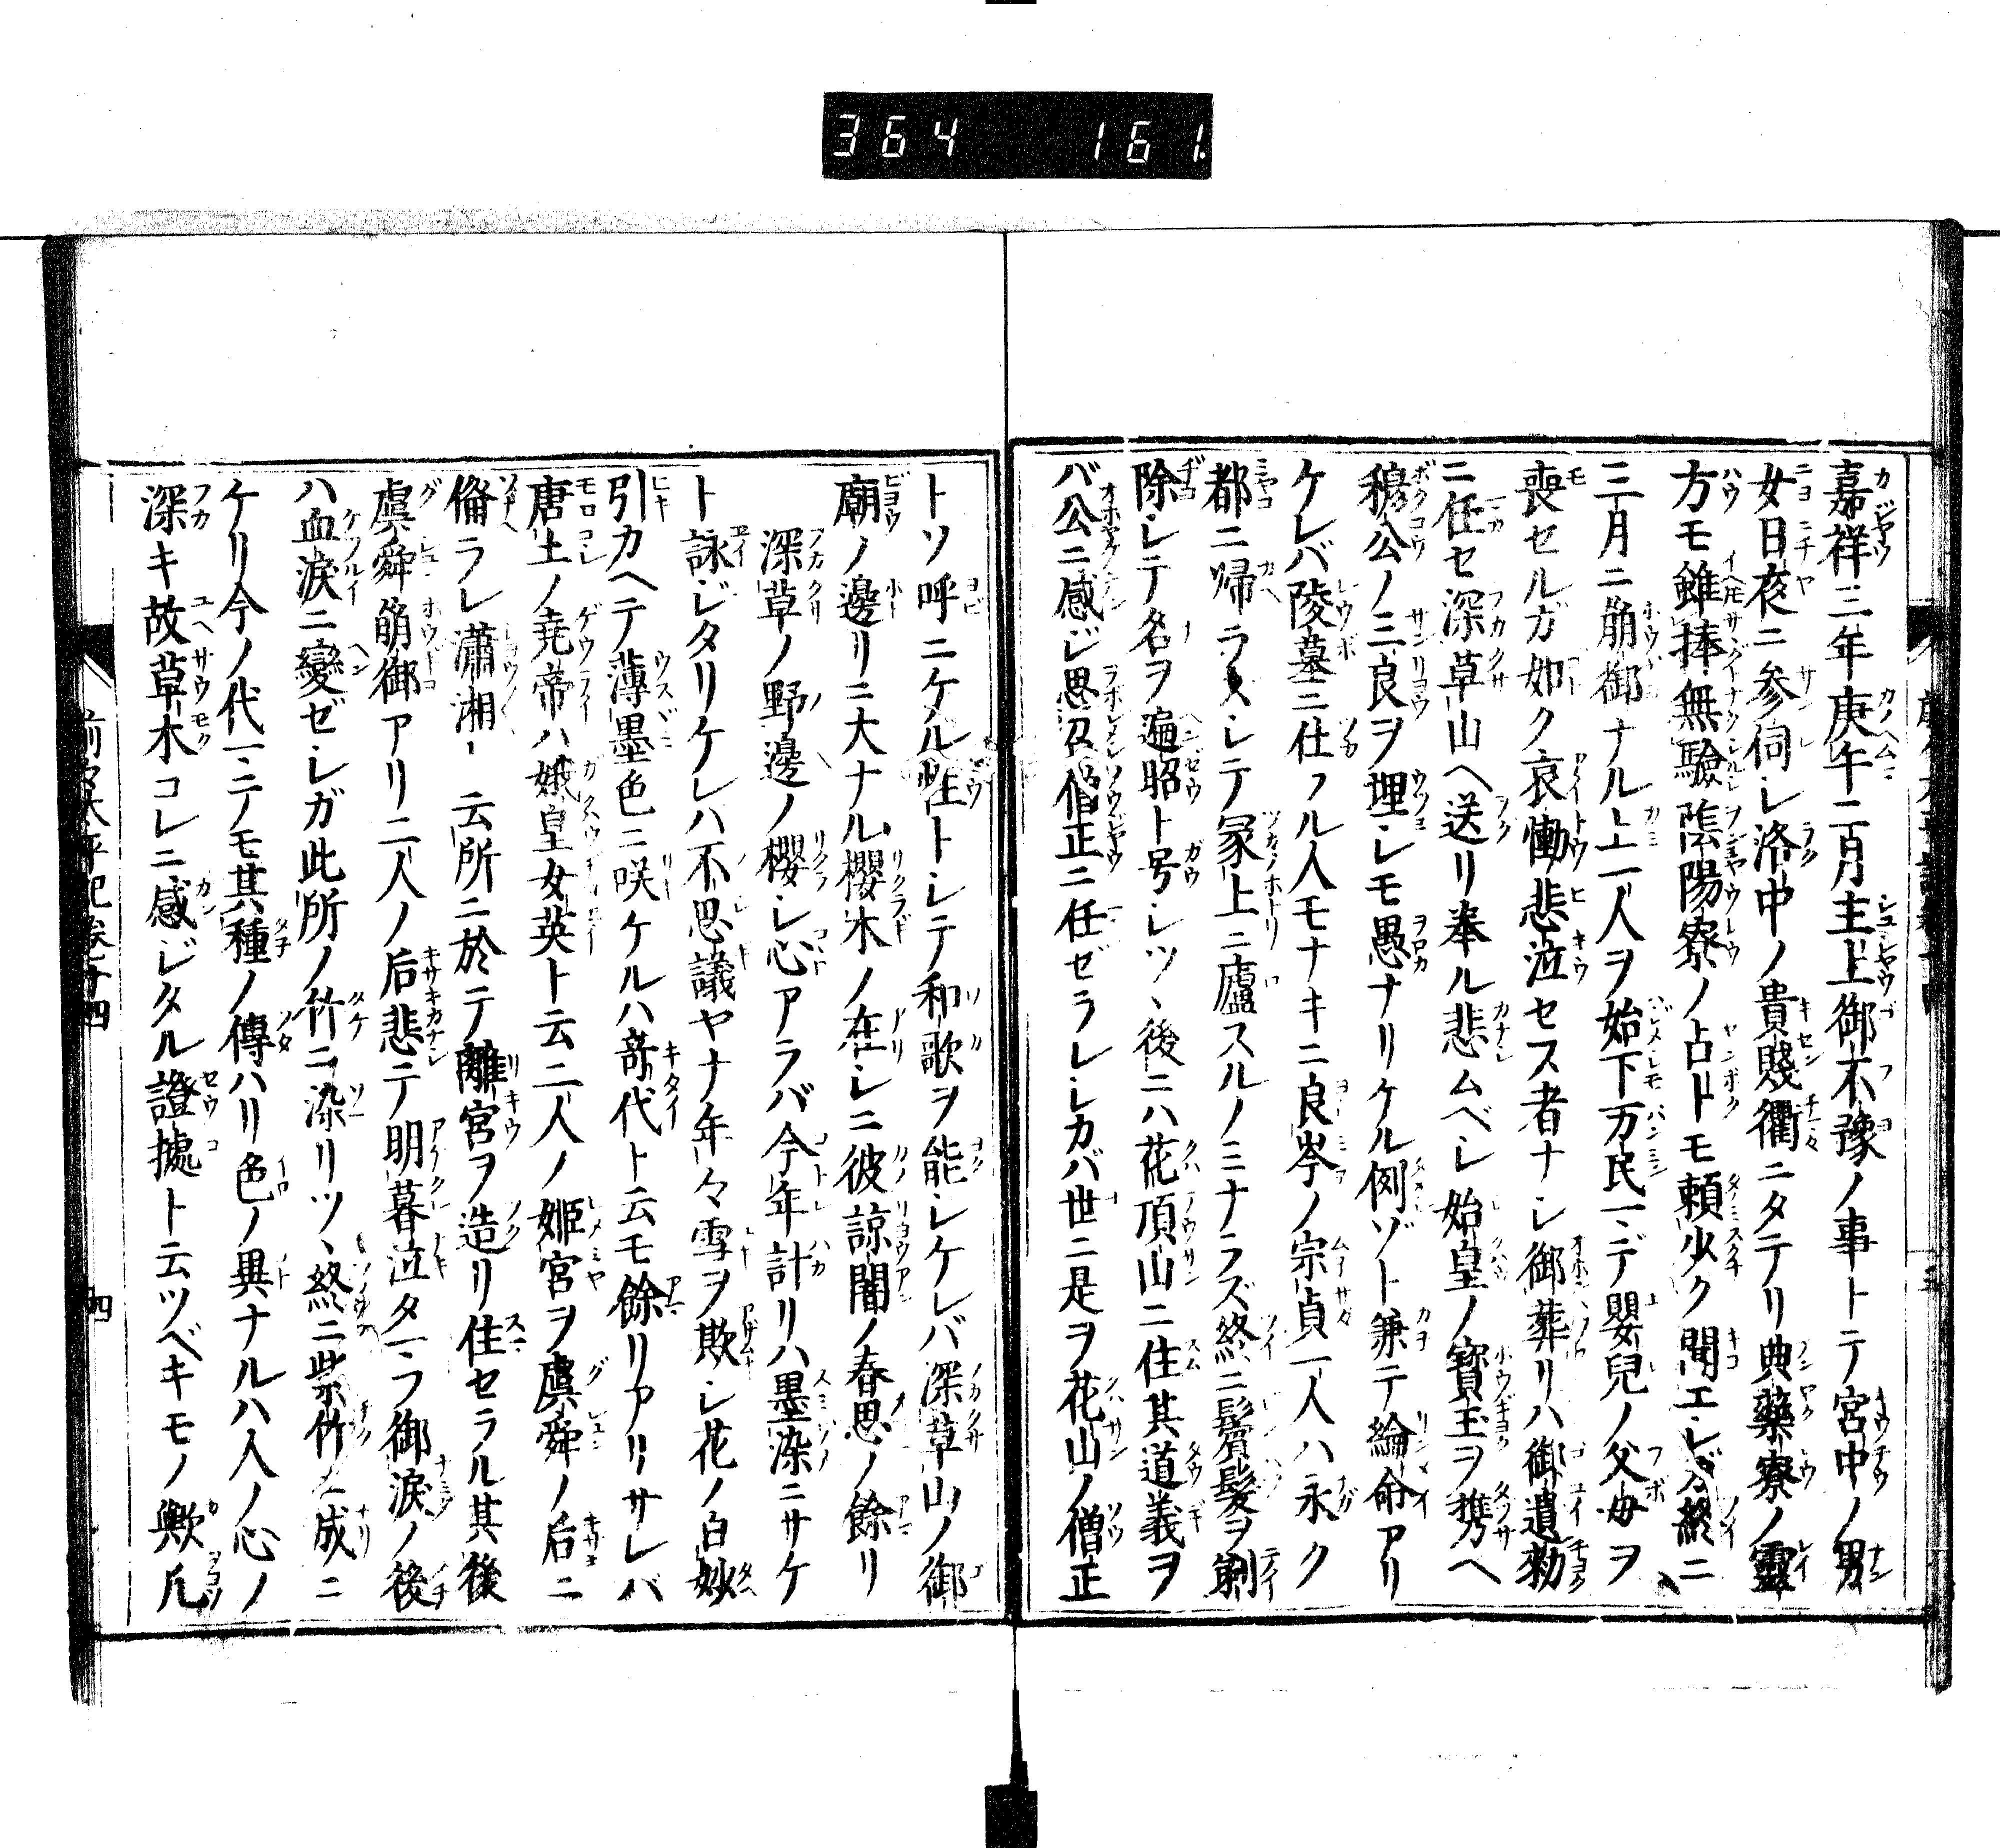 364 161.
嘉祥三年庚午二百月主上御不豫ノ事トテ宮中ノ男
女日夜ニ参伺シ洛中ノ貴賤衢ニタテリ典藥寮ノ靈
方モ雖捧無驗陰陽寮ノ占卜モ頼少ク聞エシガ終ニ
三月ニ崩御ナル上一人ヲ始下万民ニ デ嬰兒ノ父母ヲ
喪セルガ如ク哀慟悲泣セス者ナシ御葬リハ御遺勅
ニ任セ深草山ヘ送リ奉ル悲ムベシ始皇ノ寳玉ヲ携ヘ
穆公ノ三良ヲ埋シモ愚ナリケル例ゾト兼テ綸命アリ
ケレバ陵墓ニ仕フル人モナキニ良岑ノ宗貞一人ハ永ク
都ニ帰ラスシテ冢上ニ廬スルノミナラズ終ニ鬢髮ヲ剃
除シテ名ヲ遍昭ト号シツヽ後ニハ花頂山ニ住其道義ヲ
バ公ニ感ジ思召僧正ニ任ゼラレシカバ世ニ是ヲ花山ノ僧正
トソ呼ニケル性トシテ和歌ヲ能シケレバ深草山ノ御
廟ノ邊リニ大ナル櫻木ノ在シニ彼諒闇ノ春思ノ餘リ
深草ノ野邊ノ櫻シ心アラバ今年計リハ墨染ニサケ
ト詠ジタリケレハ不思議ヤナ年々雪ヲ欺シ花ノ白妙
引カヘテ薄墨色ニ咲ケルハ竒代ト云モ餘リアリサレバ
唐土ノ堯帝ハ娥皇女英ト云二人ノ姫宮ヲ虞舜ノ后ニ
備ラレ瀟湘ト云所ニ於テ離宮ヲ造リ住セラル其後
虞舜崩御アリ二人ノ后悲テ明暮泣タマフ御淚ノ後
ハ血淚ニ變ゼシガ此所ノ竹ニ染リツヽ終ニ紫竹ト成ニ
ケリ今ノ代マテモ其種ノ傳ハリ色ノ異ナルハ人ノ心ノ
深キ故草木コレニ感ジタル證據ト云ツベキモノ歟凡
前太平記卷廿四
四